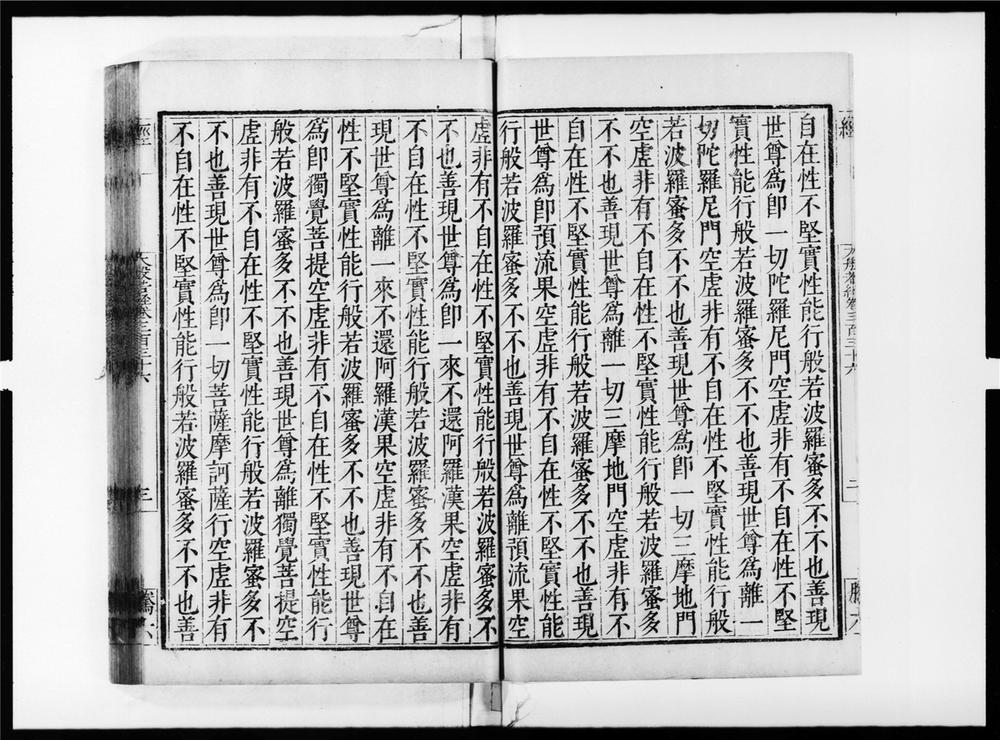 自在性不堅實性能行般若波羅蜜多不不也善現
世尊為即一切陀羅尼門空虛非有不自在性不堅
實性能行般若波羅蜜多不不也善現世尊為離一
切陀羅尼門空虛非有不自在性不堅實性能行般
若波羅蜜多不不也善現世尊為即一切三摩地門
空虛非有不自在性不堅實性能行般若波羅蜜多
不不也善現世尊為離一切三摩地門空虛非有不
自在性不堅實性能行般若波羅蜜多不不也善現
世尊為即預流果空虛非有不自在性不堅實性能
行般若波羅蜜多不不也善現世尊為離預流果空
虛非有不自在性不堅實性能行般若波羅蜜多不
不也善現世尊為即一來不還阿羅漢果空虛非有
不自在性不堅實性能行般若波羅蜜多不不也善
現世尊為離一來不還阿羅漢果空虛非有不自在
性不堅實性能行般若波羅蜜多不不也善現世尊
為即獨覺菩提空虛非有不自在性不堅實性能行
般若波羅蜜多不不也善現世尊為離獨覺菩提空
虛非有不自在性不堅實性能行般若波羅蜜多不
不也善現世尊為即一切菩薩摩訶薩行空虛非有
不自在性不堅實性能行般若波羅蜜多不不也善
經 大般若經卷三百三十六 三